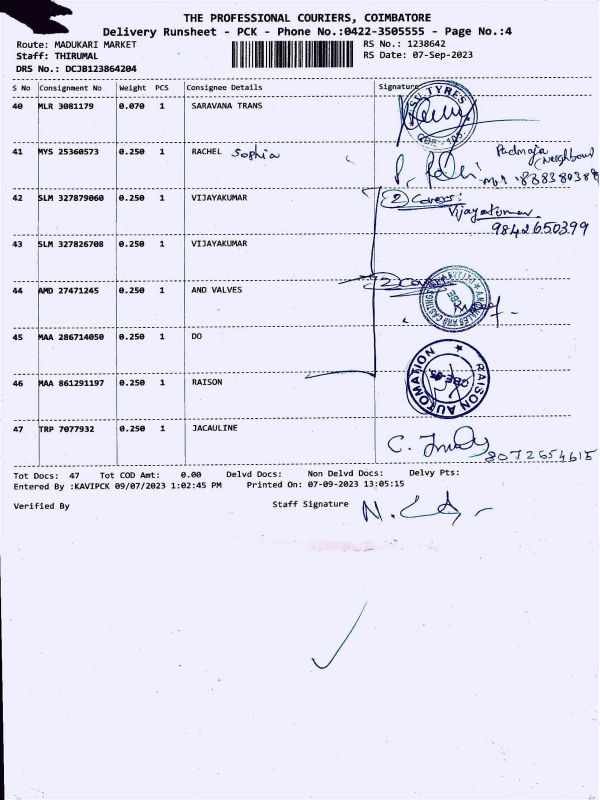 THE PROFESSIONAL COURIERS, COIMBATORE
Delivery Runsheet - PCK - Phone No.:0422-3505555 - Page No.:4
Route: MADUKARI MARKET
RS No.: 1238642
Staff: THIRUMAL
RS Date: 07-Sep-2023
DRS No.: DCJB123864204
S No Consignment No Weight PCS Consignee Details Signature
40 MLR 3081179 0.070 1 SARAVANA TRANS
TYRES
41 MYS 25360573 0.250 1 RACHEL Sophia
Padmaja
(Neighbour)
42 SLM 327879060 0.250 1 VIJAYAKUMAR
(2) Covers:
Vijayakumar
9842650399
43 SLM 327826708 0.250 1 VIJAYAKUMAR
(2) Covers
44 AMD 27471245 0.250 1 AND VALVES
45 MAA 286714050 0.250 1 DO
46 MAA 861291197 0.250 1 RAISON
RAISON AUTOMATION
47 TRP 7077932 0.250 1 JACAULINE
8072654615
Tot Docs: 47 Tot COD Amt: 0.00 Delvd Docs: Non Delvd Docs: Delvy Pts:
Entered By :KAVIPCK 09/07/2023 1:02:45 PM Printed On: 07-09-2023 13:05:15
Verified By
Staff Signature